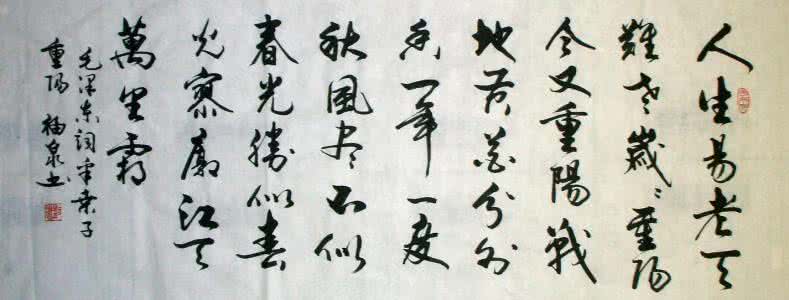 人生易老天
難老歲〻重阳
今又重陽戰
地黄花分外
香一年一度
秋風尽不似
春光勝似春
光寥廓江天
萬里霜
毛泽东词采桑子
重阳 福泉书